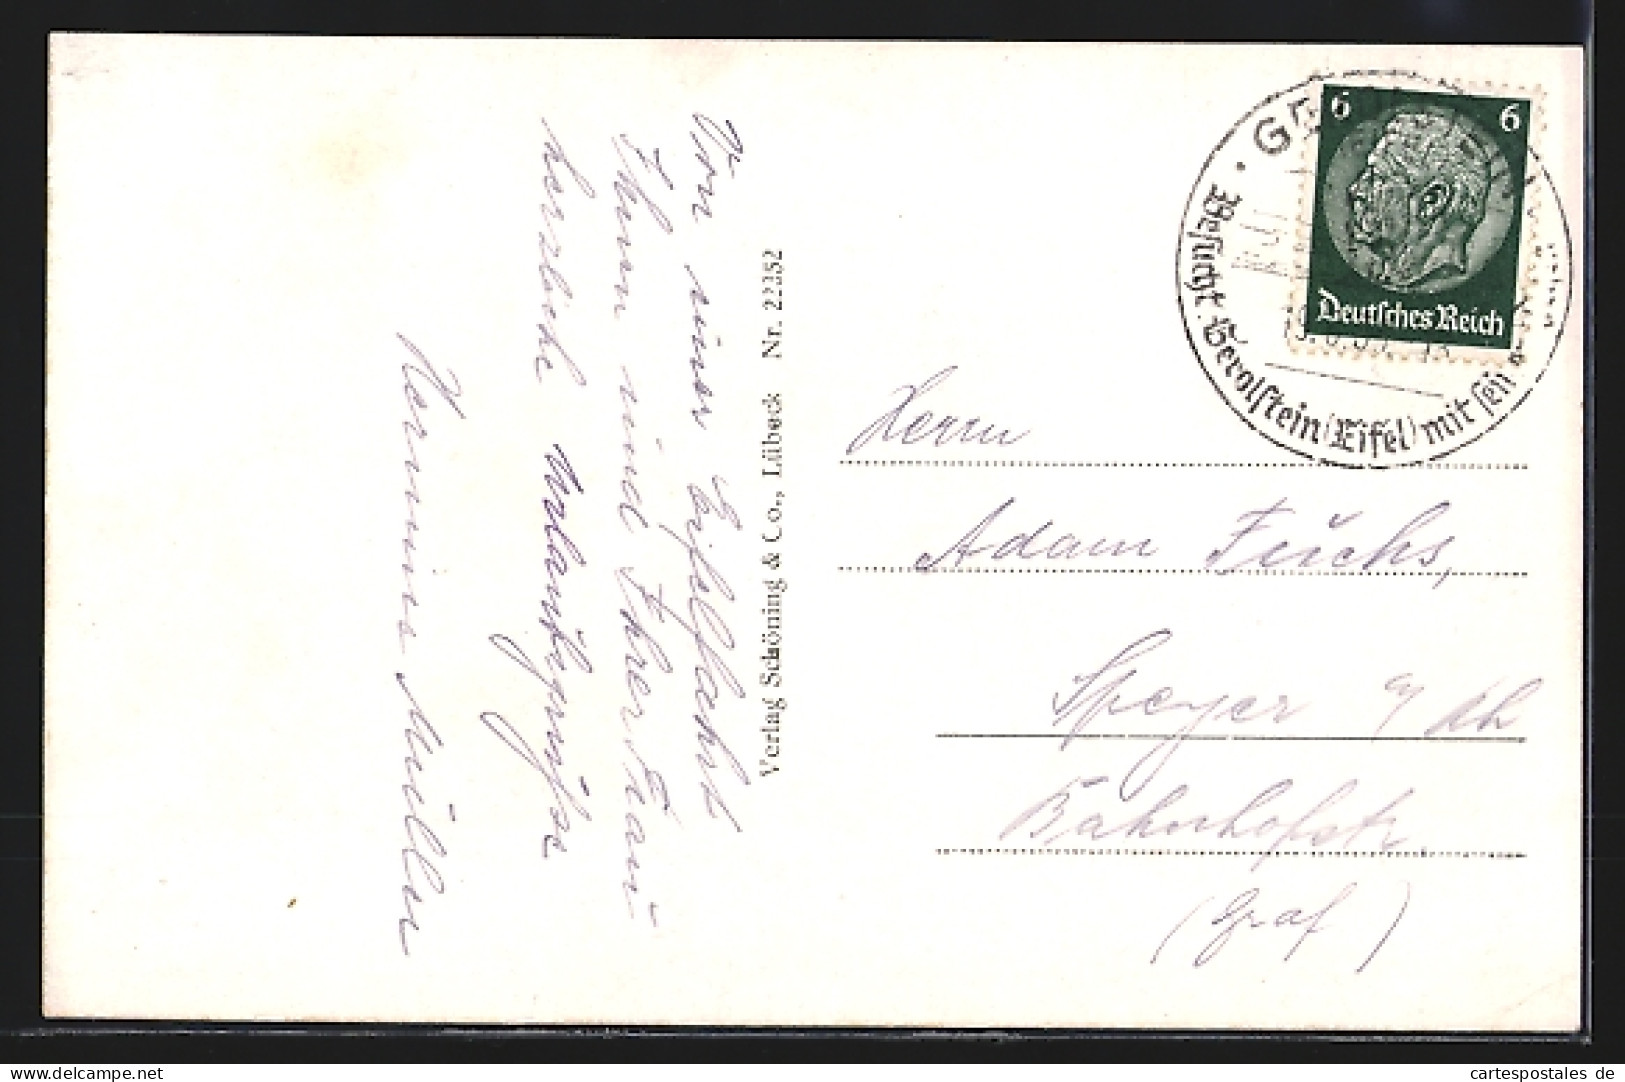 Von einer Eifelfahrt
Ihnen und Ihrer Frau
herzliche Urlaubsgrüße
Müller
Verlag Schöning & Co., Lübeck Nr. 22352
6 6
Deutsches Reich
Besucht Gerolstein (Eifel) mit
Herrn
Adam Fuchs,
Speyer a/Rh
Bahnhofstr.
(Graf)
cartespostales de
http://www.delcampe.net